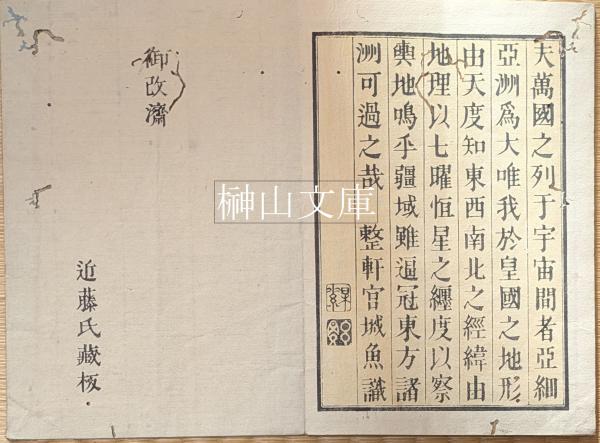 夫萬國之列于宇宙間者亞細
亞洲爲大唯我於皇國之地形
由天度知東西南北之經緯由
地理以七曜恒星之纏度以察
輿地嗚乎疆域雖逼冠東方諸
洲可過之哉 整軒宮城魚識
御改濟
近藤氏藏板
榊山文庫